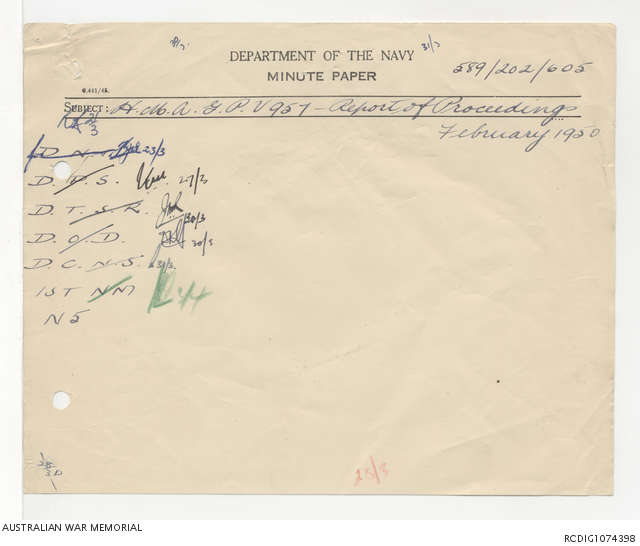 DEPARTMENT OF THE NAVY
31/3
MINUTE PAPER
589/202/605
SUBJECT: H.M.A. G.P.V 957 - Report of Proceedings
February 1950
23/3
D. P. S. 27/3
D. T. S. R. 30/3
D. O. D. 30/3
D. C. N. S. 31/3
1ST NM
N 5
25/3
AUSTRALIAN WAR MEMORIAL
RCDIG1074398